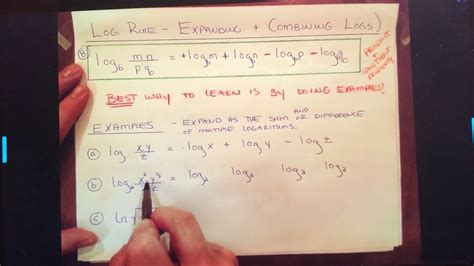 LOG RULE - EXPANDING + COMBINING LOGS)
⑧ log_b mn/pq = +log_b m + log_b n - log_b p - log_b q
PRODUCT + QUOTIENT
BEST WAY TO LEARN IS BY DOING EXAMPLES!
EXAMPLES - EXPAND AS THE SUM AND OR DIFFERENCE
OF MULTIPLE LOGARITHMS.
ⓐ log xy/z = log x + log y - log z
ⓑ log = log₂ log₂ log₂ log₂
ⓒ ln